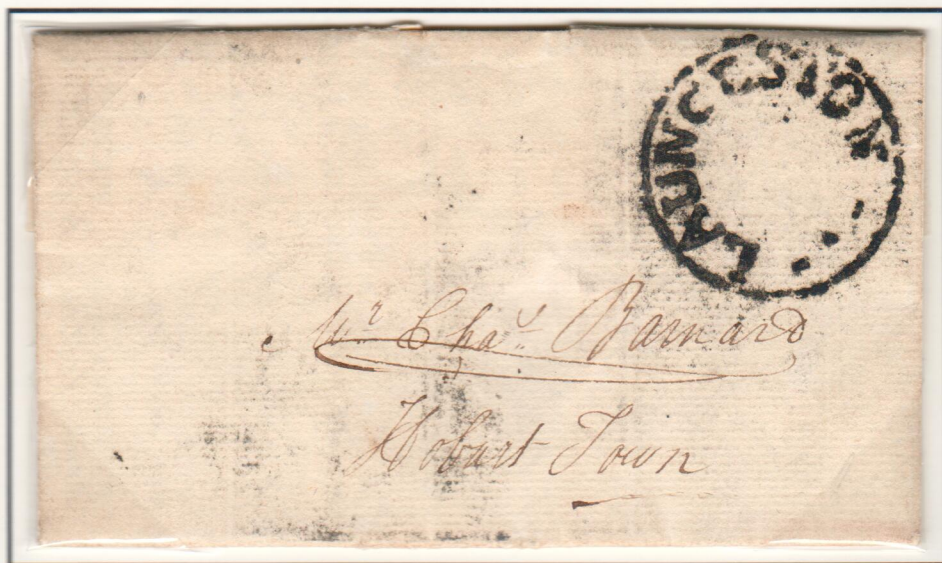 LAUNCESTON
Mr Chas Barnard
Hobart Town